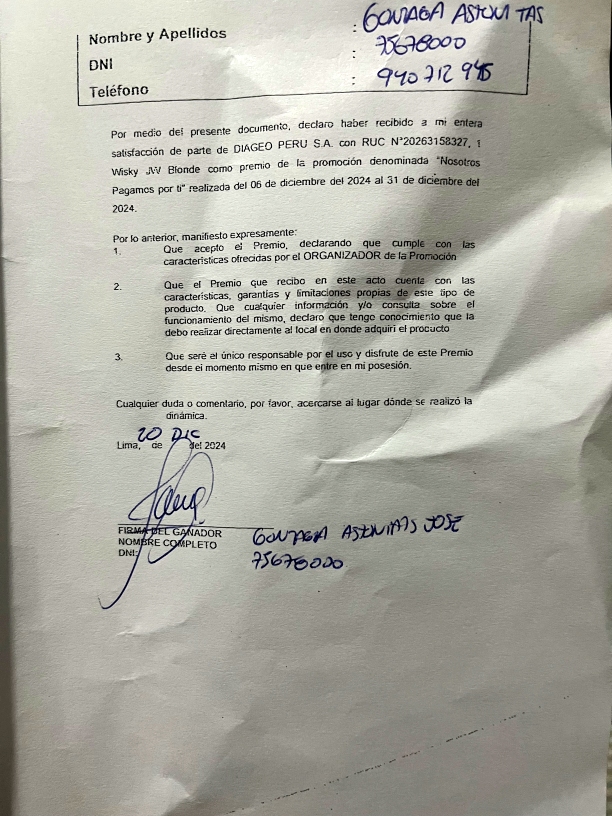 Nombre y Apellidos : GONZAGA ASTONITAS
DNI : 75678000
Teléfono : 940 712 945
Por medio del presente documento, declaro haber recibido a mi entera
satisfacción de parte de DIAGEO PERU S.A. con RUC N°20263158327, 1
Wisky JW Blonde como premio de la promoción denominada "Nosotros
Pagamos por ti" realizada del 06 de diciembre del 2024 al 31 de diciembre del
2024.
Por lo anterior, manifiesto expresamente:
1. Que acepto el Premio, declarando que cumple con las
características ofrecidas por el ORGANIZADOR de la Promoción
2. Que el Premio que recibo en este acto cuenta con las
características, garantías y limitaciones propias de este tipo de
producto. Que cualquier información y/o consulta sobre el
funcionamiento del mismo, declaro que tengo conocimiento que la
debo realizar directamente al local en donde adquirí el producto
3. Que seré el único responsable por el uso y disfrute de este Premio
desde el momento mismo en que entre en mi posesión.
Cualquier duda o comentario, por favor, acercarse al lugar dónde se realizó la
dinámica.
Lima, 20 de DIC del 2024
FIRMA DEL GANADOR
NOMBRE COMPLETO GONZAGA ASTONITAS JOSE
DNI: 75678000